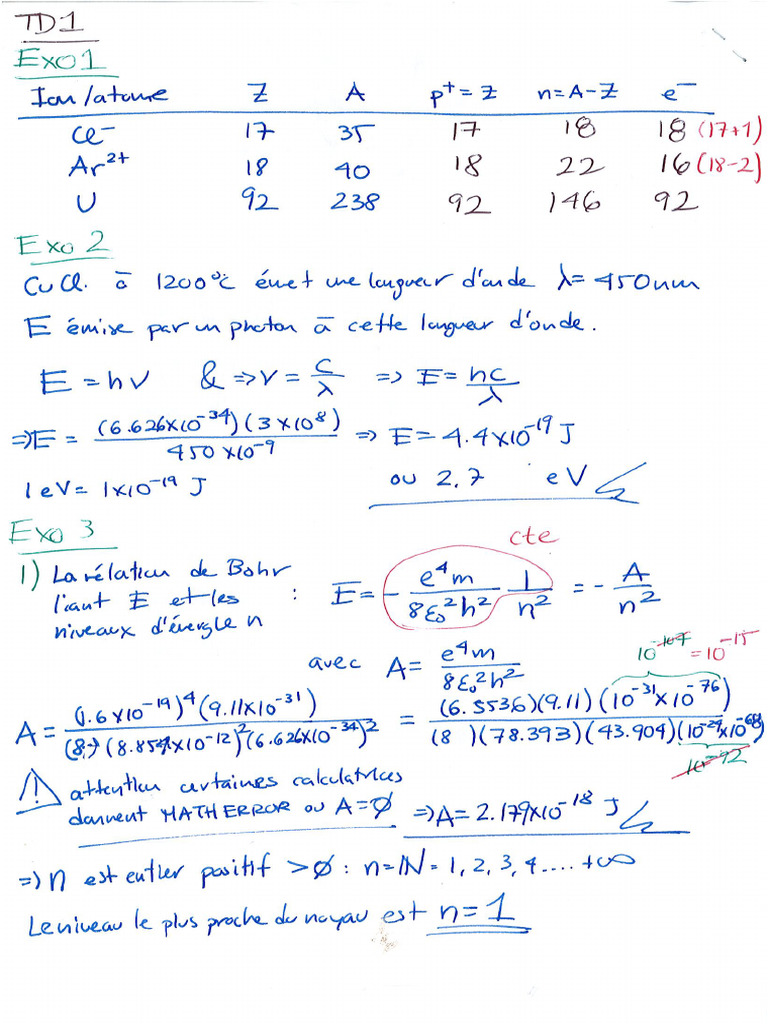 TD1
Exo1
Ion/atome Z A p⁺=Z n=A-Z e⁻
Cl⁻ 17 35 17 18 18 (17+1)
Ar²⁺ 18 40 18 22 16 (18-2)
U 92 238 92 146 92
Exo 2
CuCl. à 1200°C émet une longueur d'onde λ=450nm
E émise par un photon à cette longueur d'onde.
E=hν & ⇒ ν = c/λ ⇒ E = hc/λ
⇒ E = (6.626×10⁻³⁴)(3×10⁸)/450×10⁻⁹ ⇒ E=4.4×10⁻¹⁹ J
1eV= 1×10⁻¹⁹ J ou 2,7 eV
Exo 3
cte
1) La rélation de Bohr
liant E et les : E = - e⁴m/8ε₀²h² 1/n² = - A/n²
niveaux d'énergie n
avec A = e⁴m/8ε₀²h² 10⁻¹⁰⁷ =10⁻¹⁵
A = (1.6×10⁻¹⁹)⁴(9.11×10⁻³¹)/(8)(8.854×10⁻¹²)²(6.626×10⁻³⁴)² = (6.5536)(9.11)(10⁻³¹×10⁻⁷⁶)/(8)(78.393)(43.904)(10⁻²⁴×10⁻⁶⁸)
10⁻⁹²
⚠ attention certaines calculatrices
donnent MATH ERROR ou A=∅ ⇒A= 2.179×10⁻¹⁸ J
⇒ n est entier positif >∅ : n=ℕ= 1, 2, 3, 4 .... +∞
Le niveau le plus proche du noyau est n=1